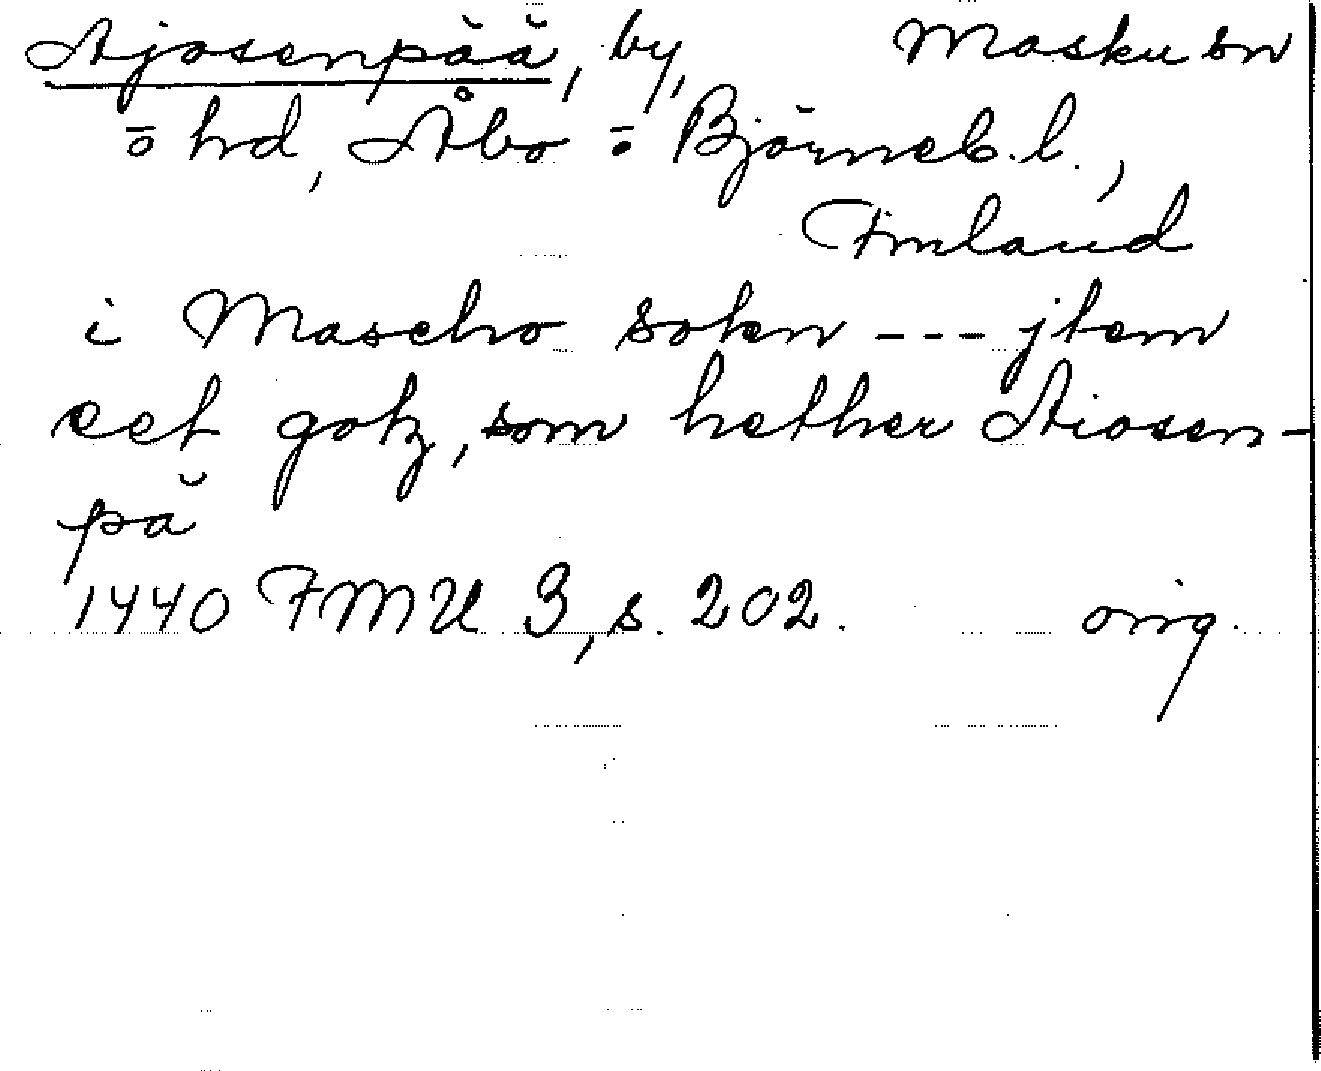 Ajosenpää, by, Masku sn
o hd, Åbo - Björneb. l.,
Finland
i Mascho sokn --- jtem
eet gotz, som hether Aiosen-
pä
1440 FMU 3, s. 202. orig.